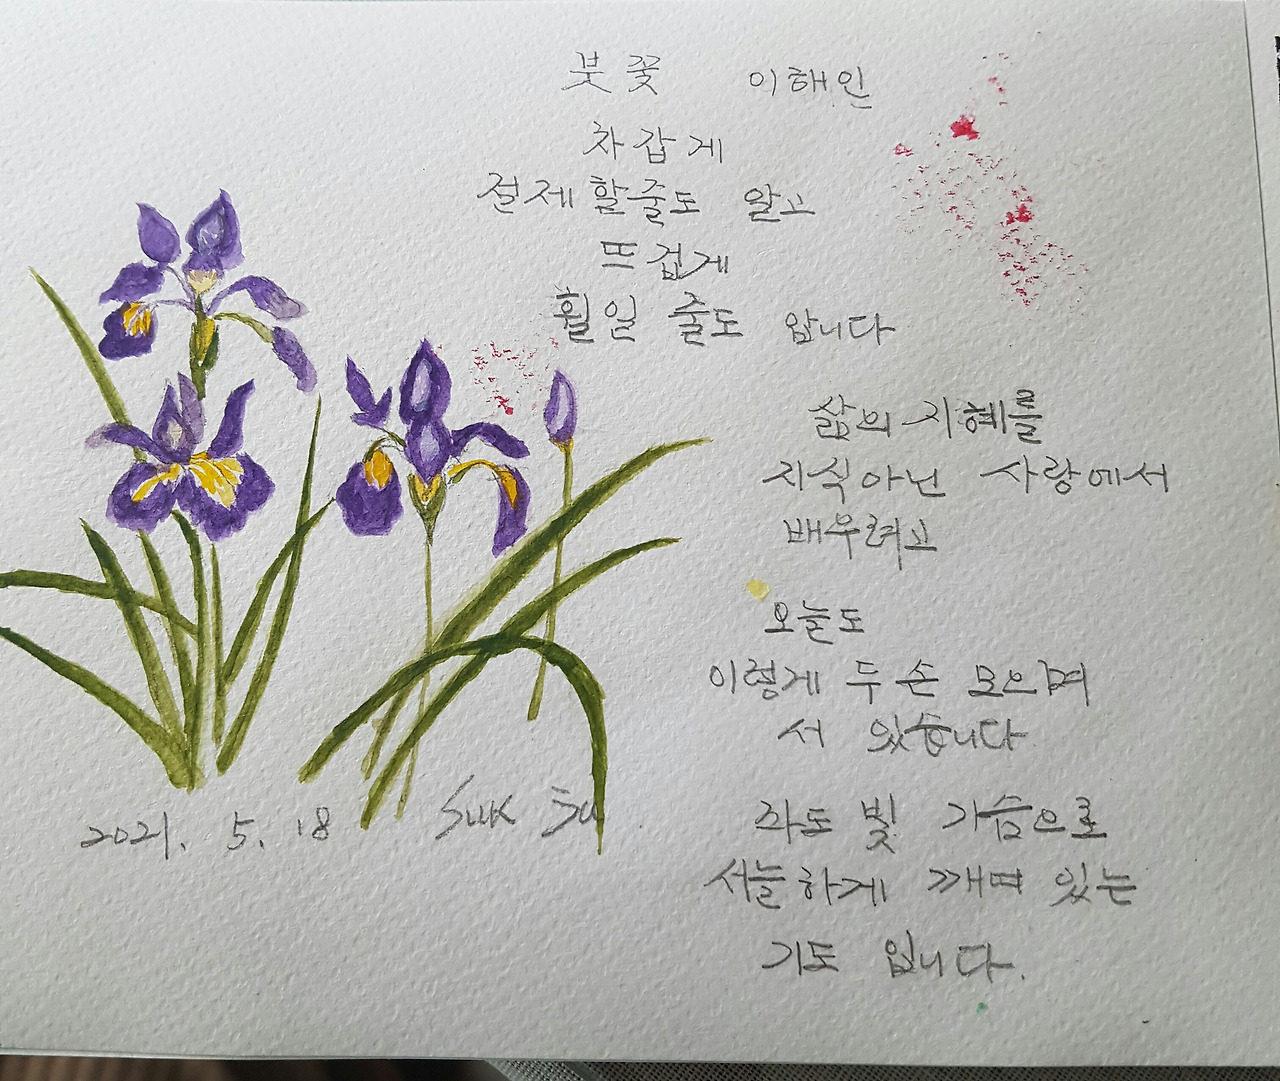 붓꽃 이해인
차갑게
절제할줄도 알고
뜨겁게
휠일 줄도 압니다
삶의 지혜를
지식아닌 사랑에서
배우려고
오늘도
이렇게 두 손 모으며
서 있습니다
좌도 빛 가슴으로
서늘하게 깨며 있는
기도 입니다.
2021. 5. 18 Suk